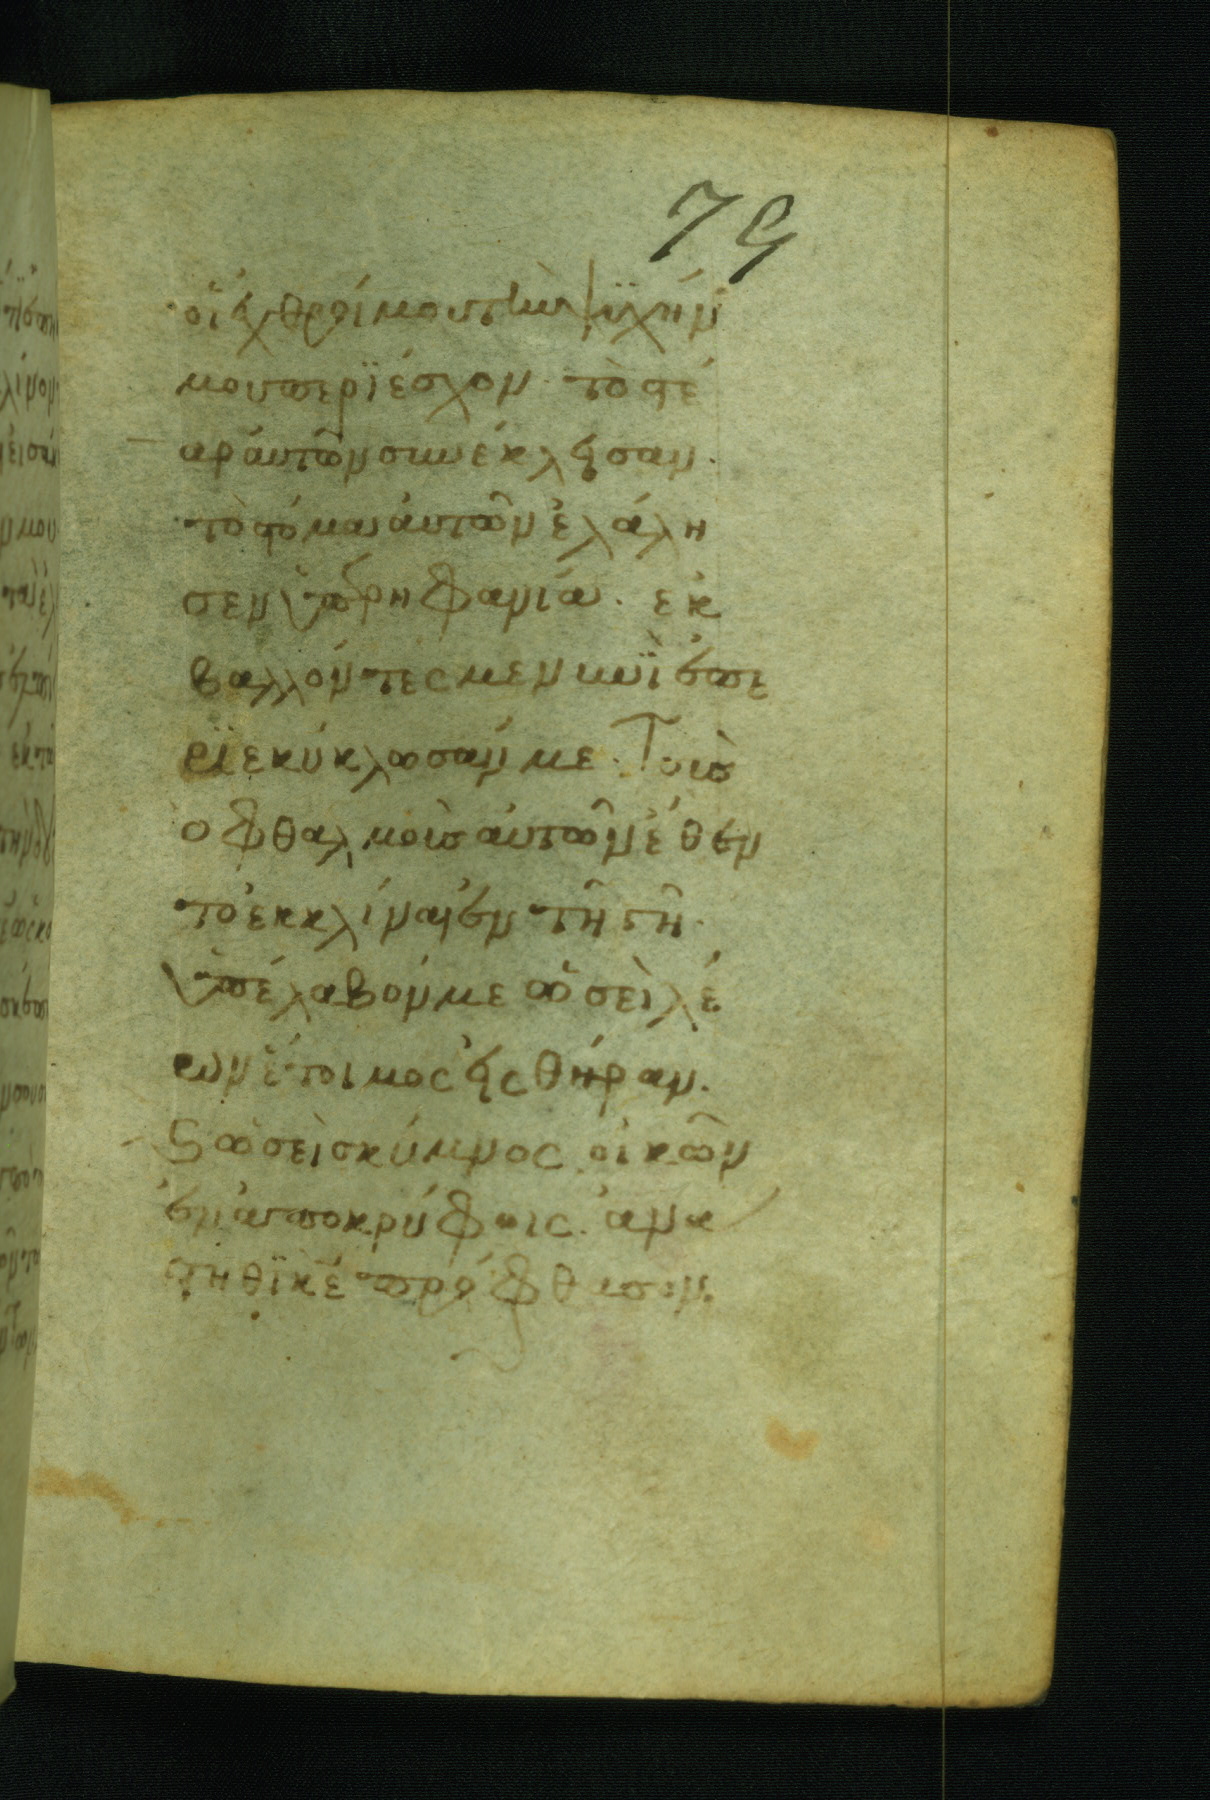 79
οἱ ἐχθροί μου τὴν ψϋχήν
μου περϊέσχον· τὸ στέ
αρ ἀυτῶν συνέκλεισαν·
τὸ στόμα ἀυτῶν ἐλάλη
σεν ὑπερηφανίαν· ἐκ
βαλλόντές με νυνῒ ἐπε
ρϊεκύκλωσάν με· Τοὺς
οφθαλμοὺς ἀυτῶν ἔθεν
το ἐκκλίναι ἐν τῆ γῆ·
ὑπέλαβόν με ὡσεὶ λέ
ων ἕτοιμος εἰς θήραν·
ϛ ὡσεὶ σκύμνος οἰκῶν
ἐν ἀποκρύφοις· ἀνά
στηθϊ κε πρόφθασον